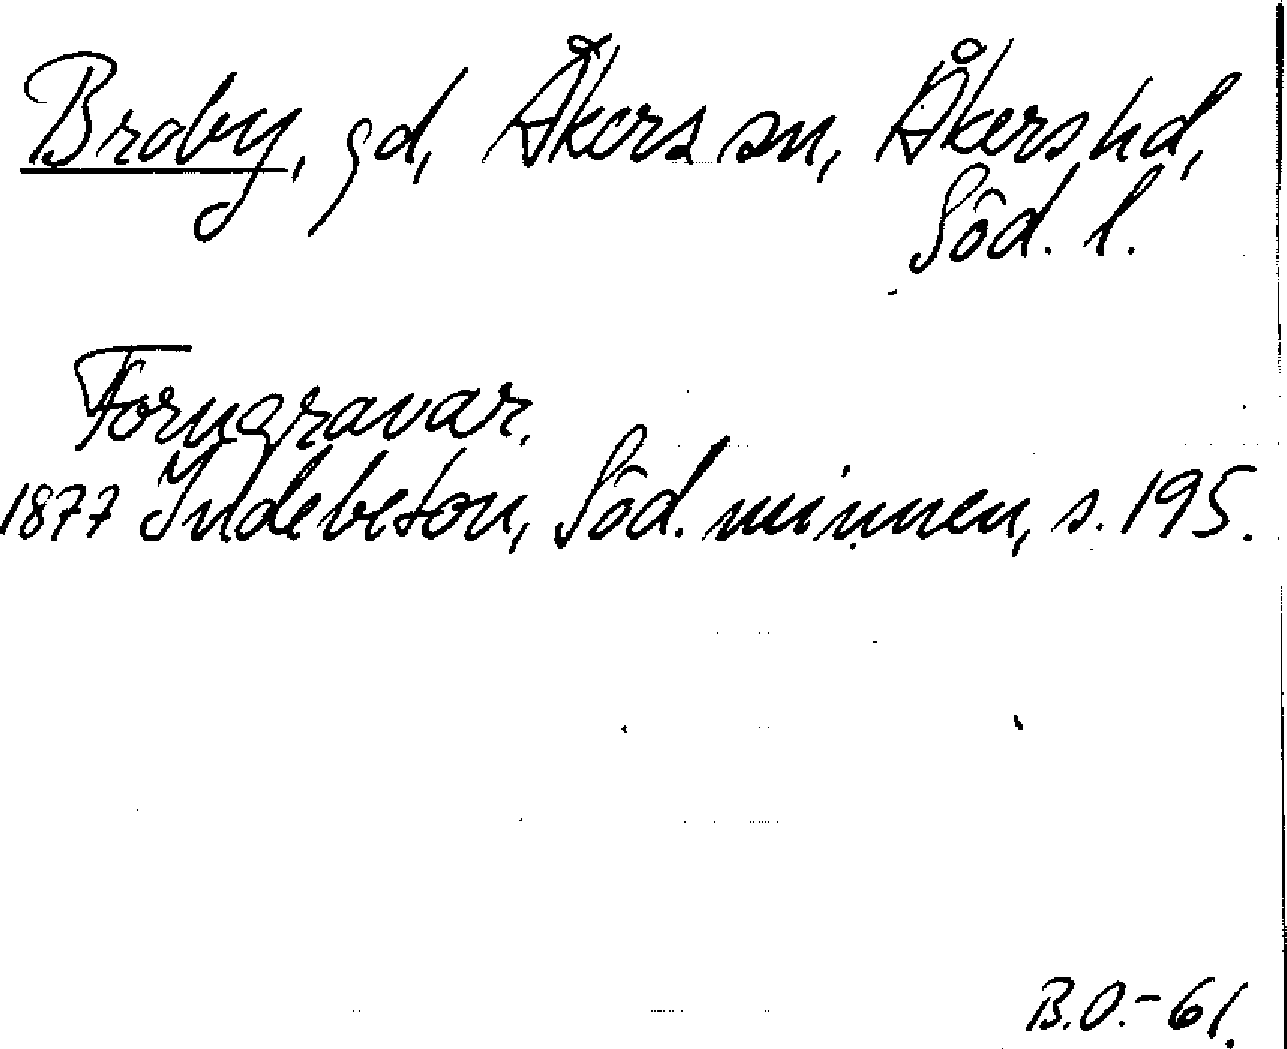 Broby, gd, Åkers sn, Åkers hd,
Söd. l.
Forngravar.
1877 Indebetou, Söd. minnen, s. 195.
B.O.-61.